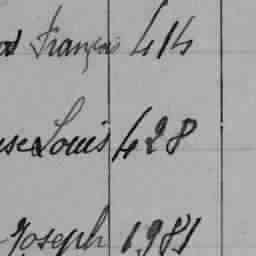 François 414
Louis 428
Joseph 1981